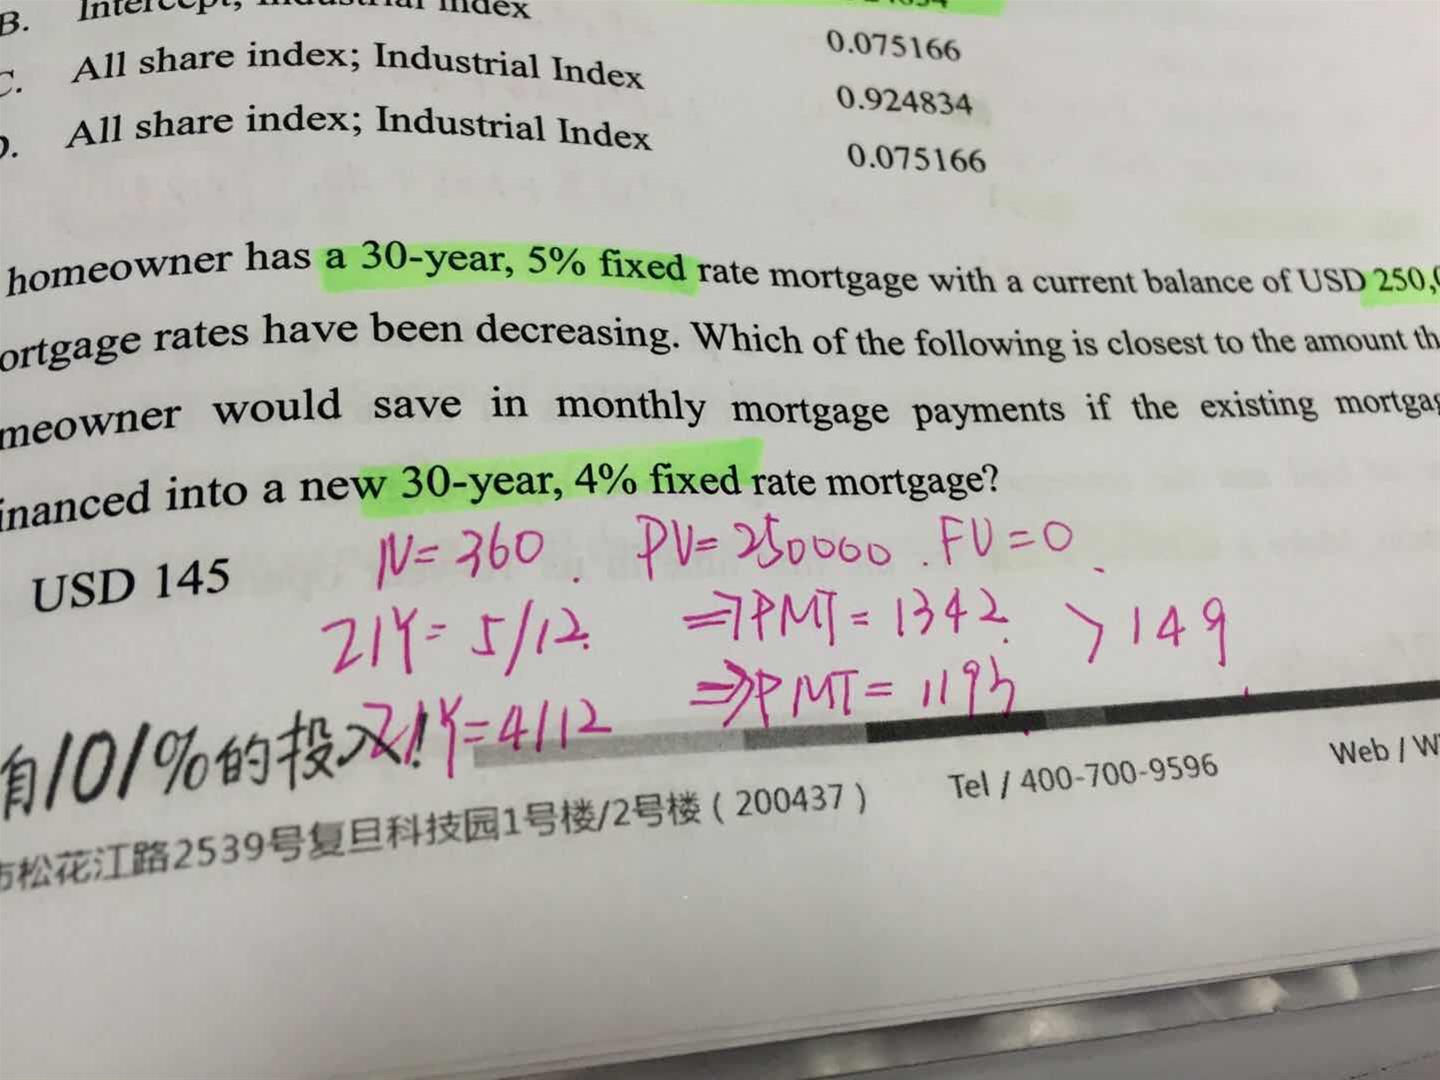 B. Intercept; Industrial Index
C. All share index; Industrial Index 0.075166
D. All share index; Industrial Index 0.924834
0.075166
homeowner has a 30-year, 5% fixed rate mortgage with a current balance of USD 250,
ortgage rates have been decreasing. Which of the following is closest to the amount th
meowner would save in monthly mortgage payments if the existing mortgag
inanced into a new 30-year, 4% fixed rate mortgage?
N=360 . PV=250000 . FV=0 .
USD 145
I/Y= 5/12. ⇒PMT= 1342. > 149
I/Y=4/12 ⇒PMT= 1193
有101%的投入!
市松花江路2539号复旦科技园1号楼/2号楼(200437) Tel / 400-700-9596 Web / W